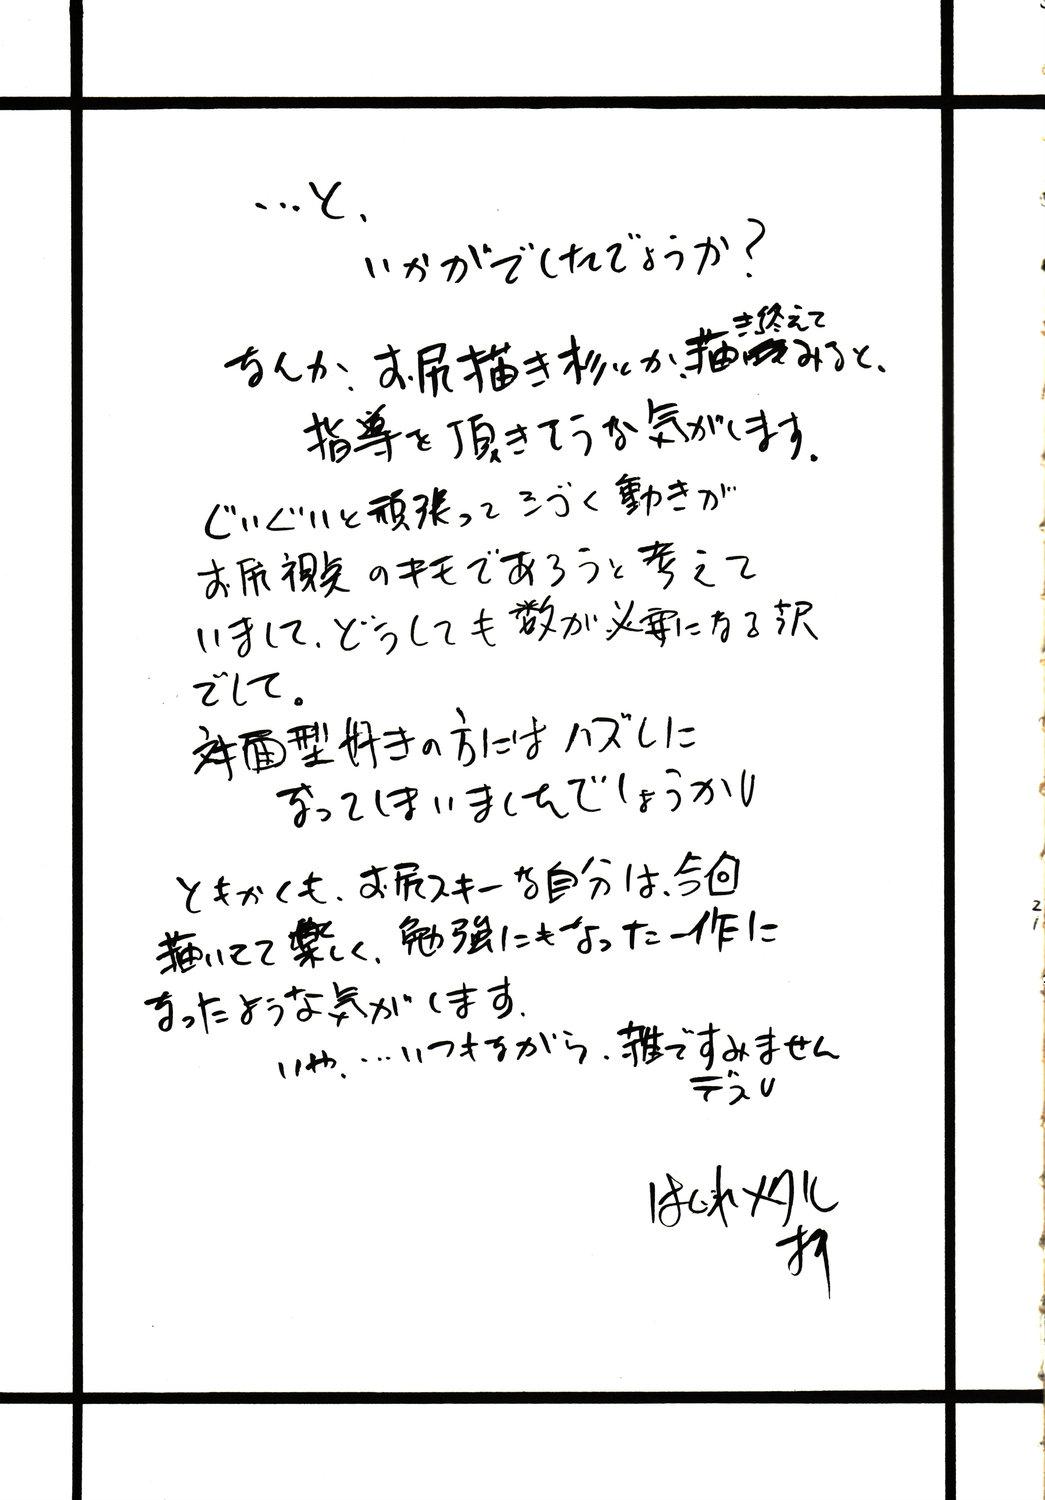 …と、
いかがでしたでしょうか?
なんか、お尻描き杉とか、描き終えてみると、
指導を頂きそうな気がします。
ぐいぐいと頑張って 動きが
お尻視点のキモであろうと考えて
いまして、どうしても数が必要になる訳
でして。
対面型好きの方にはハズしに
なってしまいましたでしょうか
ともかくも、お尻スキーな自分は、今回
描いてて楽しく、勉強にもなった一作に
なったような気がします。
いや、…いつもながら、雑ですみません
デス
はじれメタル
21